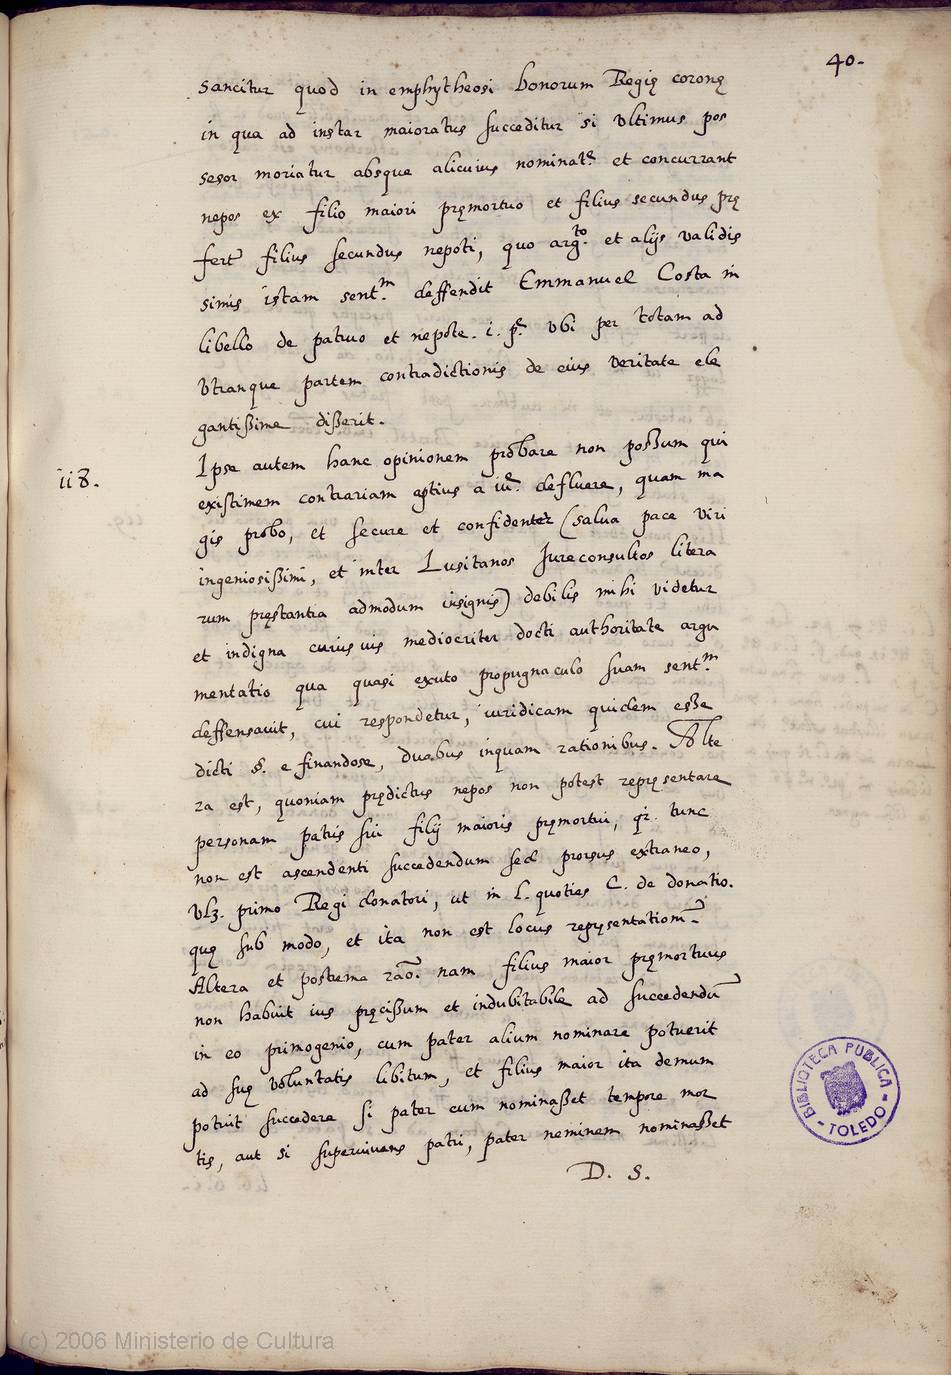 40.
sancitur quod in emphytheosi bonorum Regię coronę
in qua ad instar maioratus succeditur si ultimus pos
sesor moriatur absque alicuius nominatē et concurrant
nepos ex filio maiori pręmortuo et filius secundus prę
fertr̄ filius secundus nepoti, quo arg.to et alijs validis
simis istam sent.m deffendit Emmanuel Costa in
libello de patruo et nepote. i. p.e ubi per totam ad
utranque partem contradictionis de eius veritate ele
gantißime dißerit.
ii8.
Ipse autem hanc opinionem probare non poßum qui
existimem contrariam aptius a iu.e defluere, quam ma
gis probo, et secure et confidenter (salua pace viri
ingeniosißimi, et inter Lusitanos Jureconsultos litera
rum pręstantia admodum insignis) debilis mihi videtur
et indigna cuiusuis mediocriter docti authoritate argu
mentatio qua quasi excuto propugnaculo suam sent.m
deffensauit, cui respondetur, iuridicam quidem eße
dicti §. e finandose, duabus inquam rationibus. Alte
ra est, quoniam prędictus nepos non potest repręsentare
personam patris sui filij maioris pręmortui, qr. tunc
non est ascendenti succedendum sed prorsus extraneo,
vlz. primo Regi donatori, ut in l. quoties C. de donatio.
quę sub modo, et ita non est locus repręsentationi.
Altera et postrema rāo. nam filius maior pręmortuus
non habuit ius pręcißum et indubitabile ad succedendū
in eo primogenio, cum pater alium nominare potuerit
ad suę voluntatis libitum, et filius maior ita demum
potuit succedere si pater eum nominaßet tempore mor
tis, aut si superuiuens patri, pater neminem nominaßet
D. S.
BIBLIOTECA PUBLICA
- TOLEDO -
(c) 2006 Ministerio de Cultura